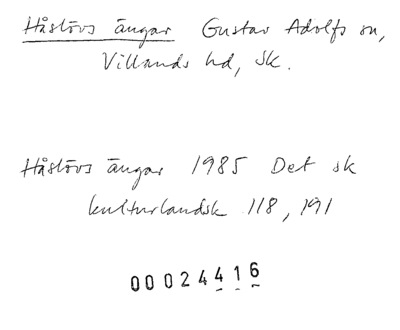 Håslövs ängar Gustav Adolfs sn,
Villands hd, Sk.
Håslövs ängar 1985 Det sk
kulturlandsk 118, 191
00024416